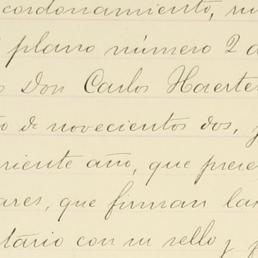 cordonamiento,
plano número 2
Don Carlos Haerte
de novecientos dos,
riente año, que
ares, que firman
tario con su sello y